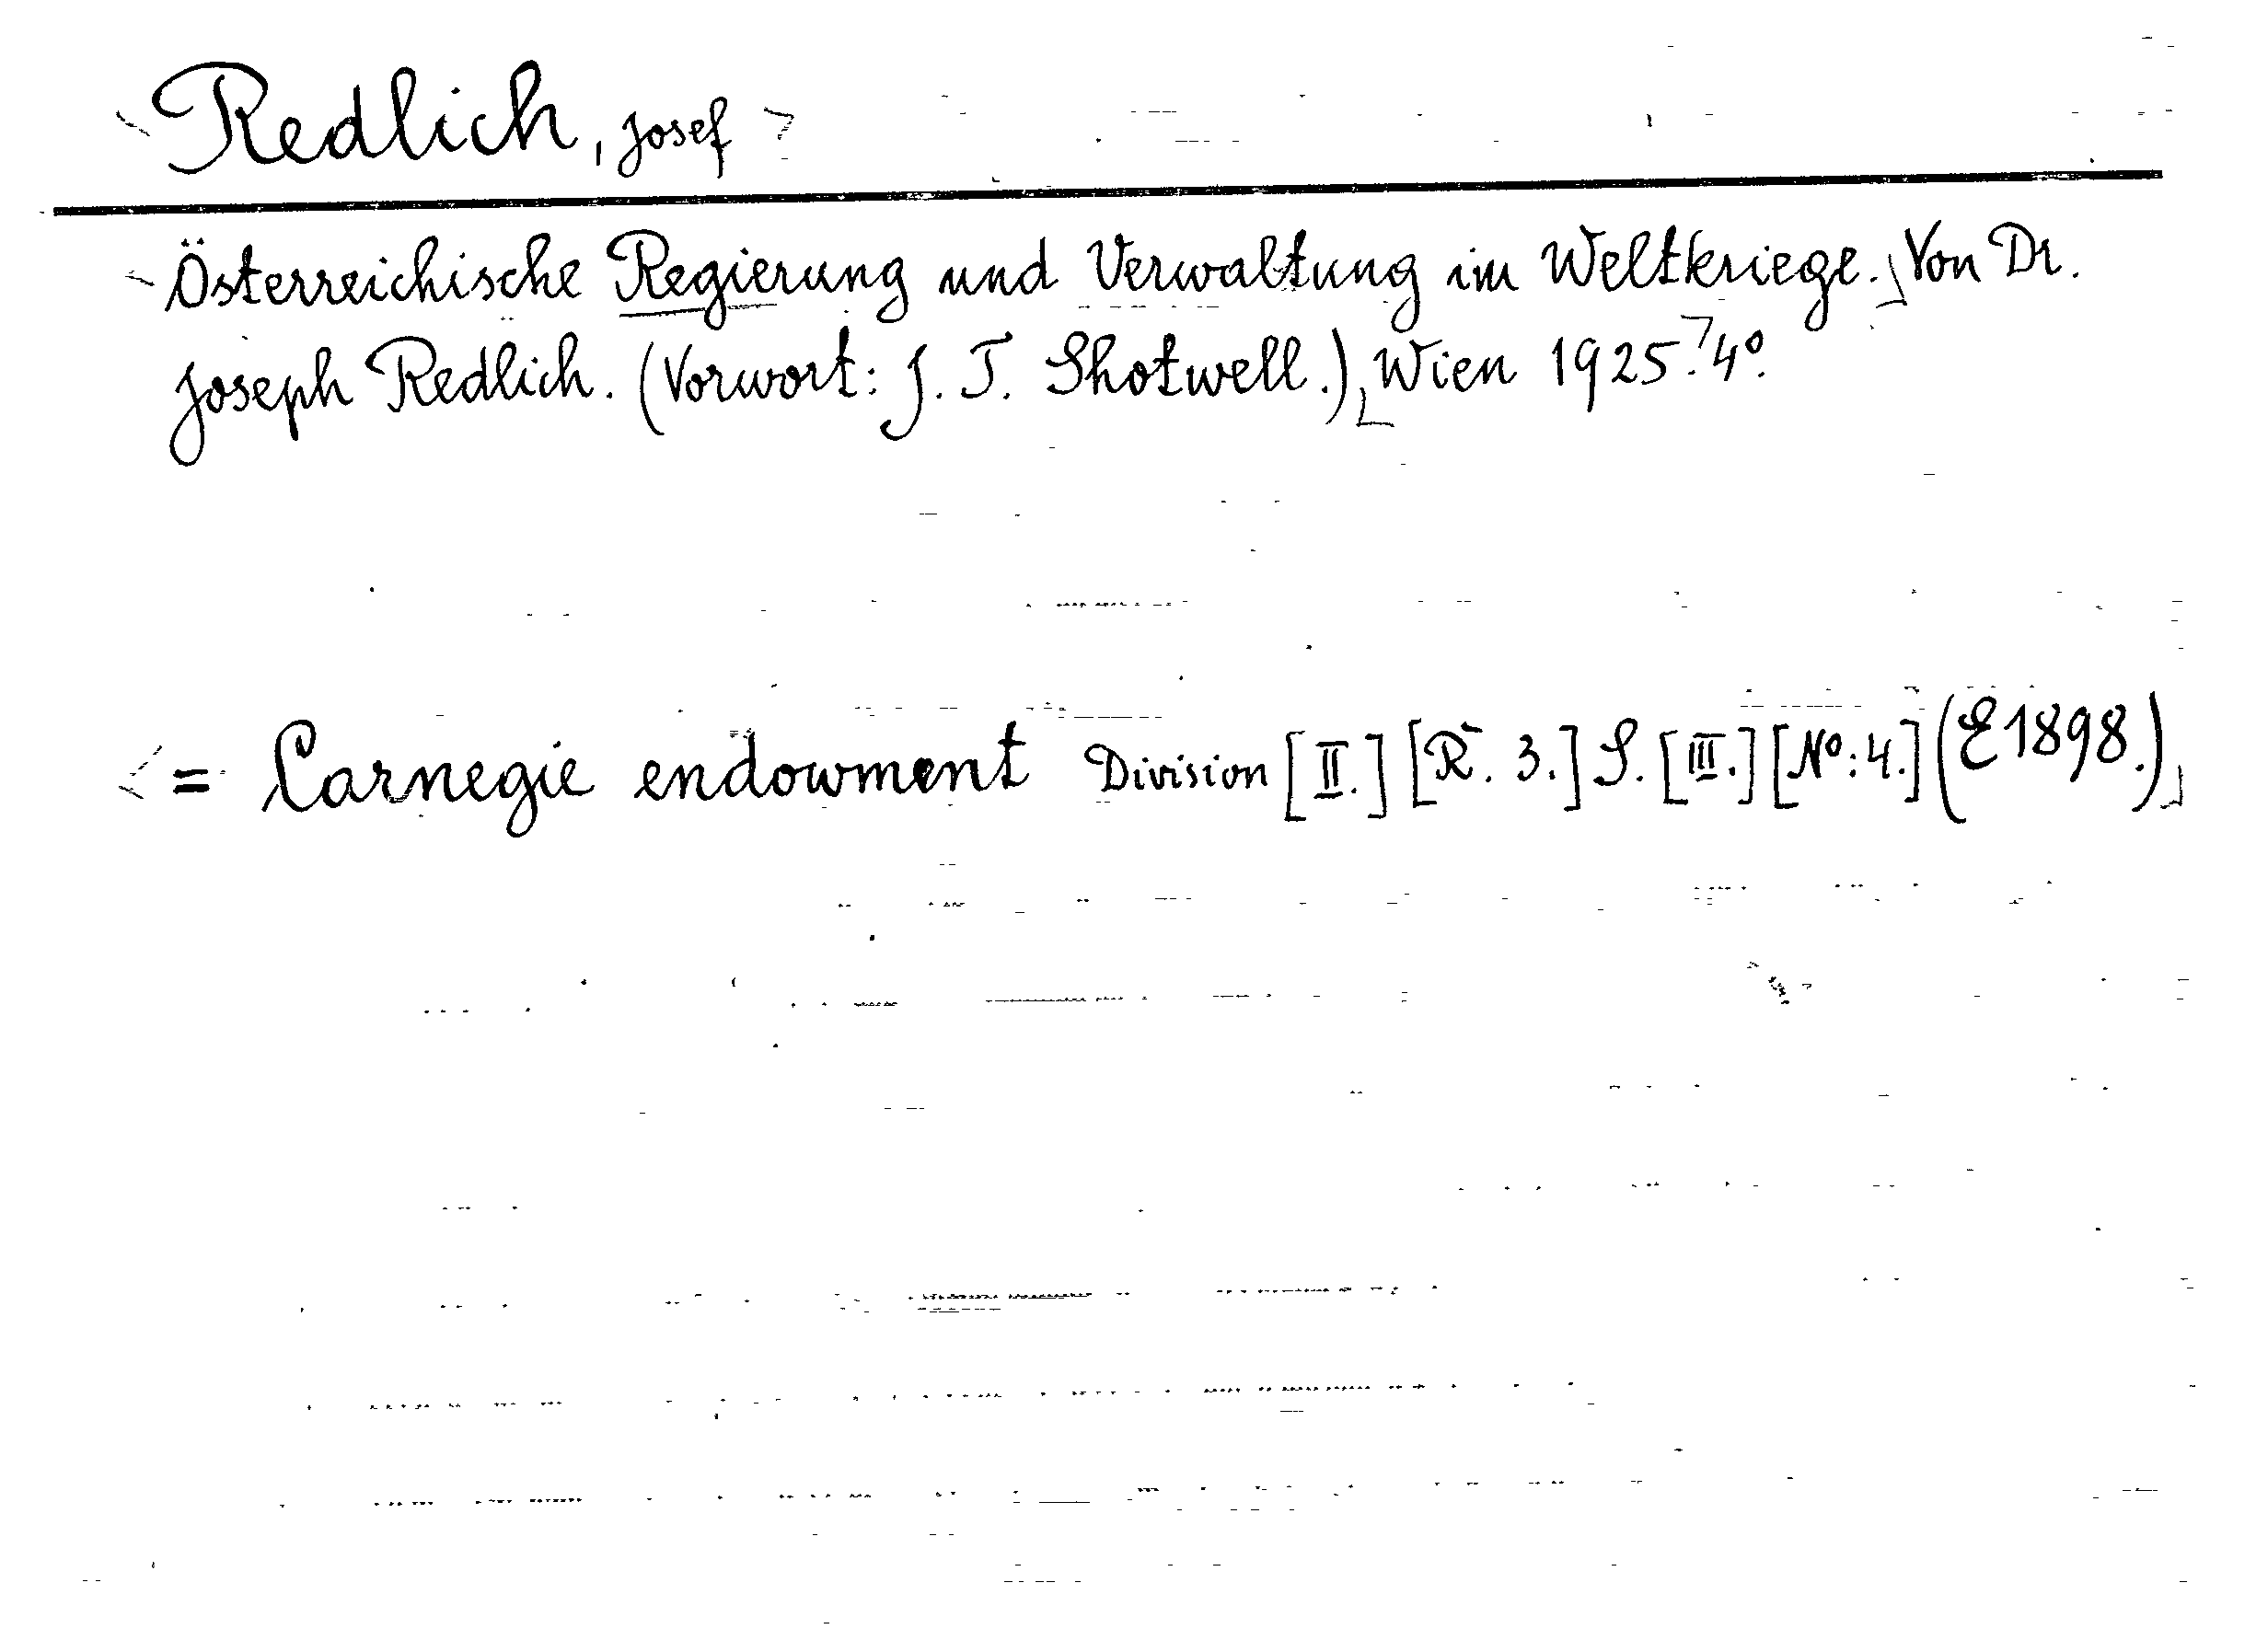 Redlich, Josef
Österreichische Regierung und Verwaltung im Weltkriege. Von Dr.
Joseph Redlich. (Vorwort: J. T. Shotwell.) Wien 1925. 4º.
= Carnegie endowment Division [II.] [R. 3.] S. [III.] [Nº: 4.] (E 1898.)